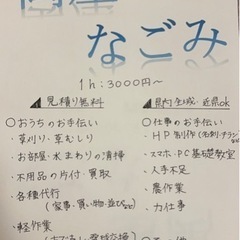 なごみ
1h:3000円〜
見積り無料
県内全域・近県ok
〇おうちのお手伝い
・草刈り・草むしり
・お部屋・水まわりの清掃
・不用品の片付・買取
・各種代行
(家事・買い物・並びなど)
・軽作業
〇仕事のお手伝い
・HP制作(名刺・チラシなど)
・スマホ・PC基礎教室
・人手不足
・農作業
・力仕事